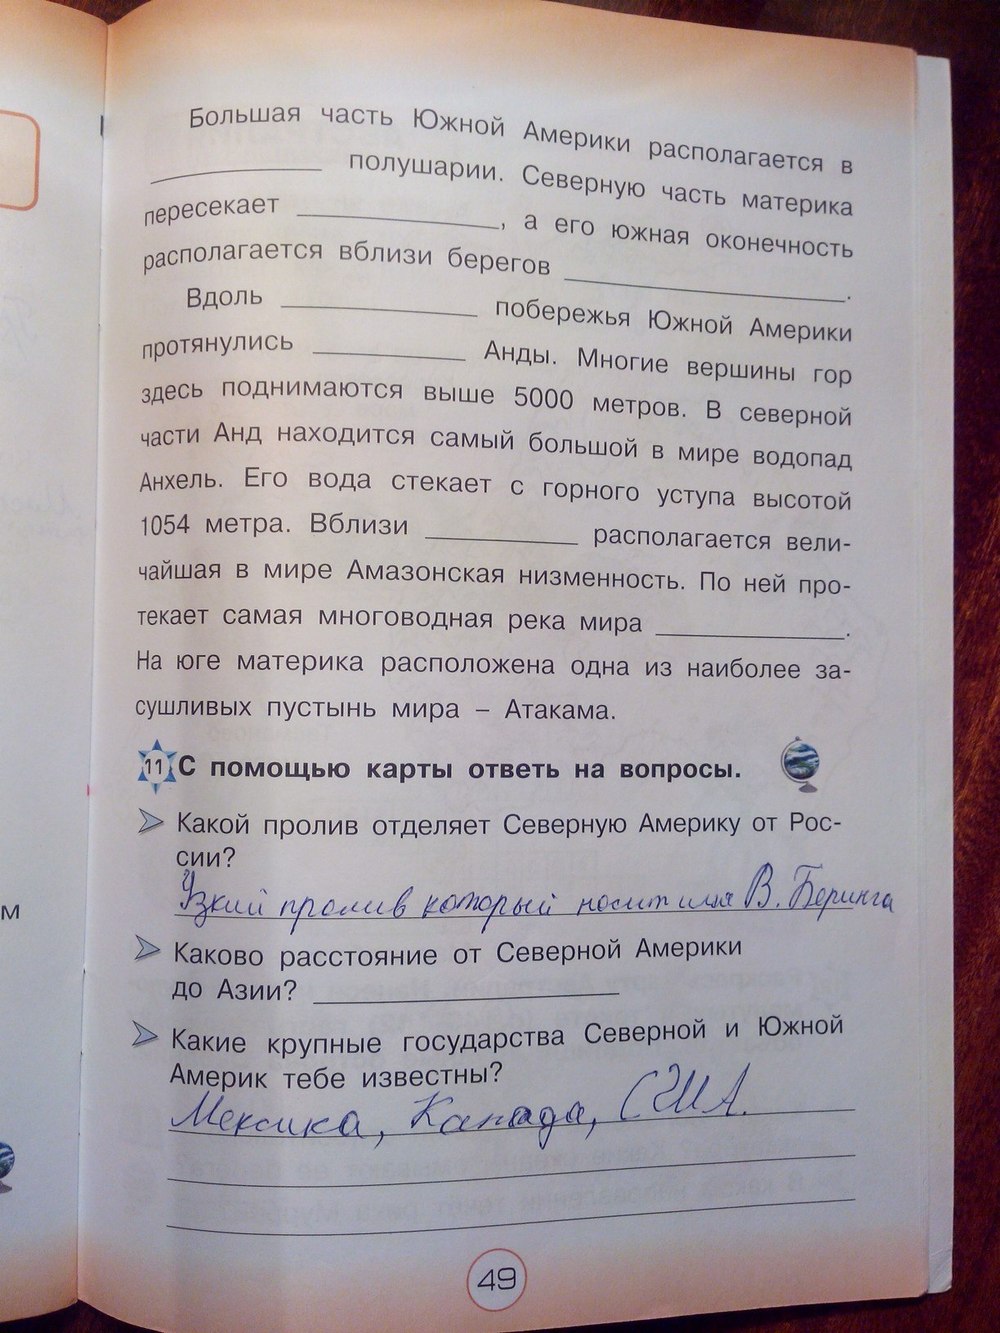 Большая часть Южной Америки располагается в
____________ полушарии. Северную часть материка
пересекает ______________, а его южная оконечность
располагается вблизи берегов ____________________.
Вдоль ______________ побережья Южной Америки
протянулись ___________ Анды. Многие вершины гор
здесь поднимаются выше 5000 метров. В северной
части Анд находится самый большой в мире водопад
Анхель. Его вода стекает с горного уступа высотой
1054 метра. Вблизи ___________ располагается вели-
чайшая в мире Амазонская низменность. По ней про-
текает самая многоводная река мира _____________.
На юге материка расположена одна из наиболее за-
сушливых пустынь мира – Атакама.
11 С помощью карты ответь на вопросы.
Какой пролив отделяет Северную Америку от Рос-
сии?
Узкий пролив который носит имя В. Беринга
Каково расстояние от Северной Америки
до Азии? ______________________
Какие крупные государства Северной и Южной
Америк тебе известны?
Мексика, Канада, США.
49
м